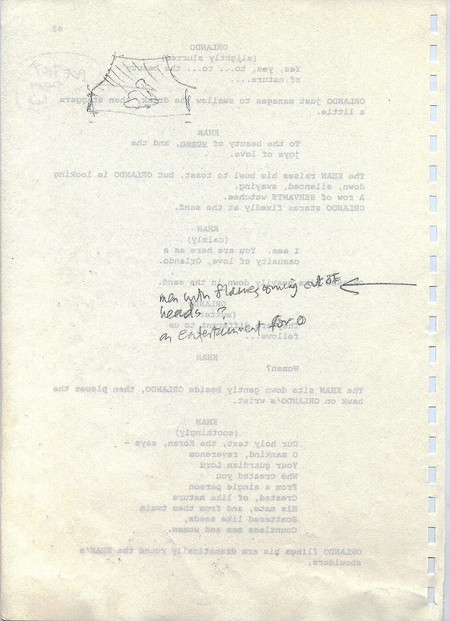 ORLANDO
(slightly slurred)
Yes, yes, to... to... the beauty
of nature....
ORLANDO just manages to swallow the drink then staggers
a little.
KHAN
To the beauty of women, and the
joys of love.
The KHAN raises his bowl to toast, but ORLANDO is looking
down, silenced, swaying.
A row of SERVANTS watches.
ORLANDO stares fixedly at the sand.
KHAN
(calmly)
I see. You are here as a
casualty of love, Orlando.
down in the sand.
men with flames coming out of
heads?
an entertainment for O
fellows...
KHAN
Women?
The KHAN sits down gently beside ORLANDO, then places the
hawk on ORLANDO's wrist.
KHAN
(soothingly)
Our holy text, the Koran, says -
O mankind, reverence
Your guardian Lord
Who created you
From a single person
Created, of like nature
His mate, and from them twain
Scattered like seeds,
Countless men and women.
ORLANDO flings his arm dramatically round the KHAN's
shoulders.